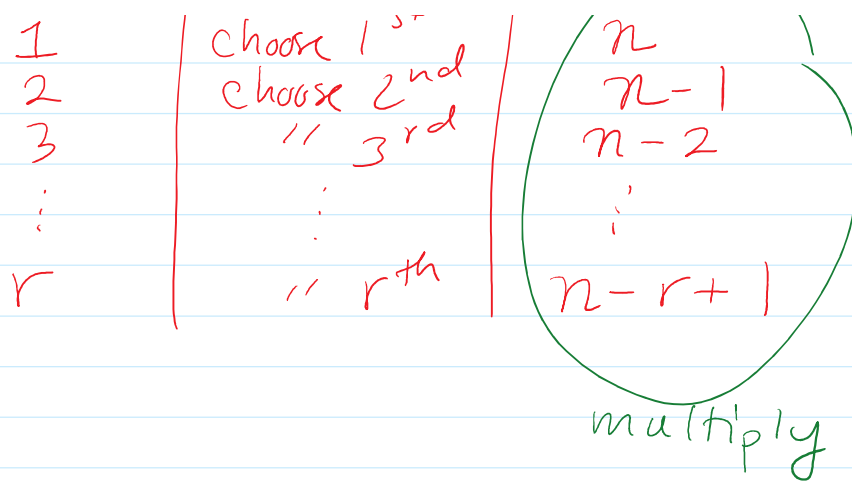 1 | choose 1st | n
2 | choose 2nd | n-1
3 | " 3rd | n-2
⋮ | ⋮ | ⋮
r | " rth | n-r+1
multiply